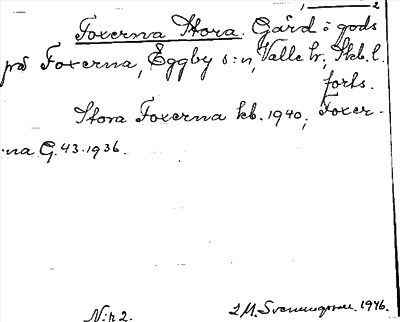 1 2
Foxerna Stora. Gård i gods
på Foxerna, Eggby s:n, Valle hr, Skb. l.
forts.
Stora Foxerna kb. 1940, Foxer-
na G. 43. 1936.
N:r 2.
1946.